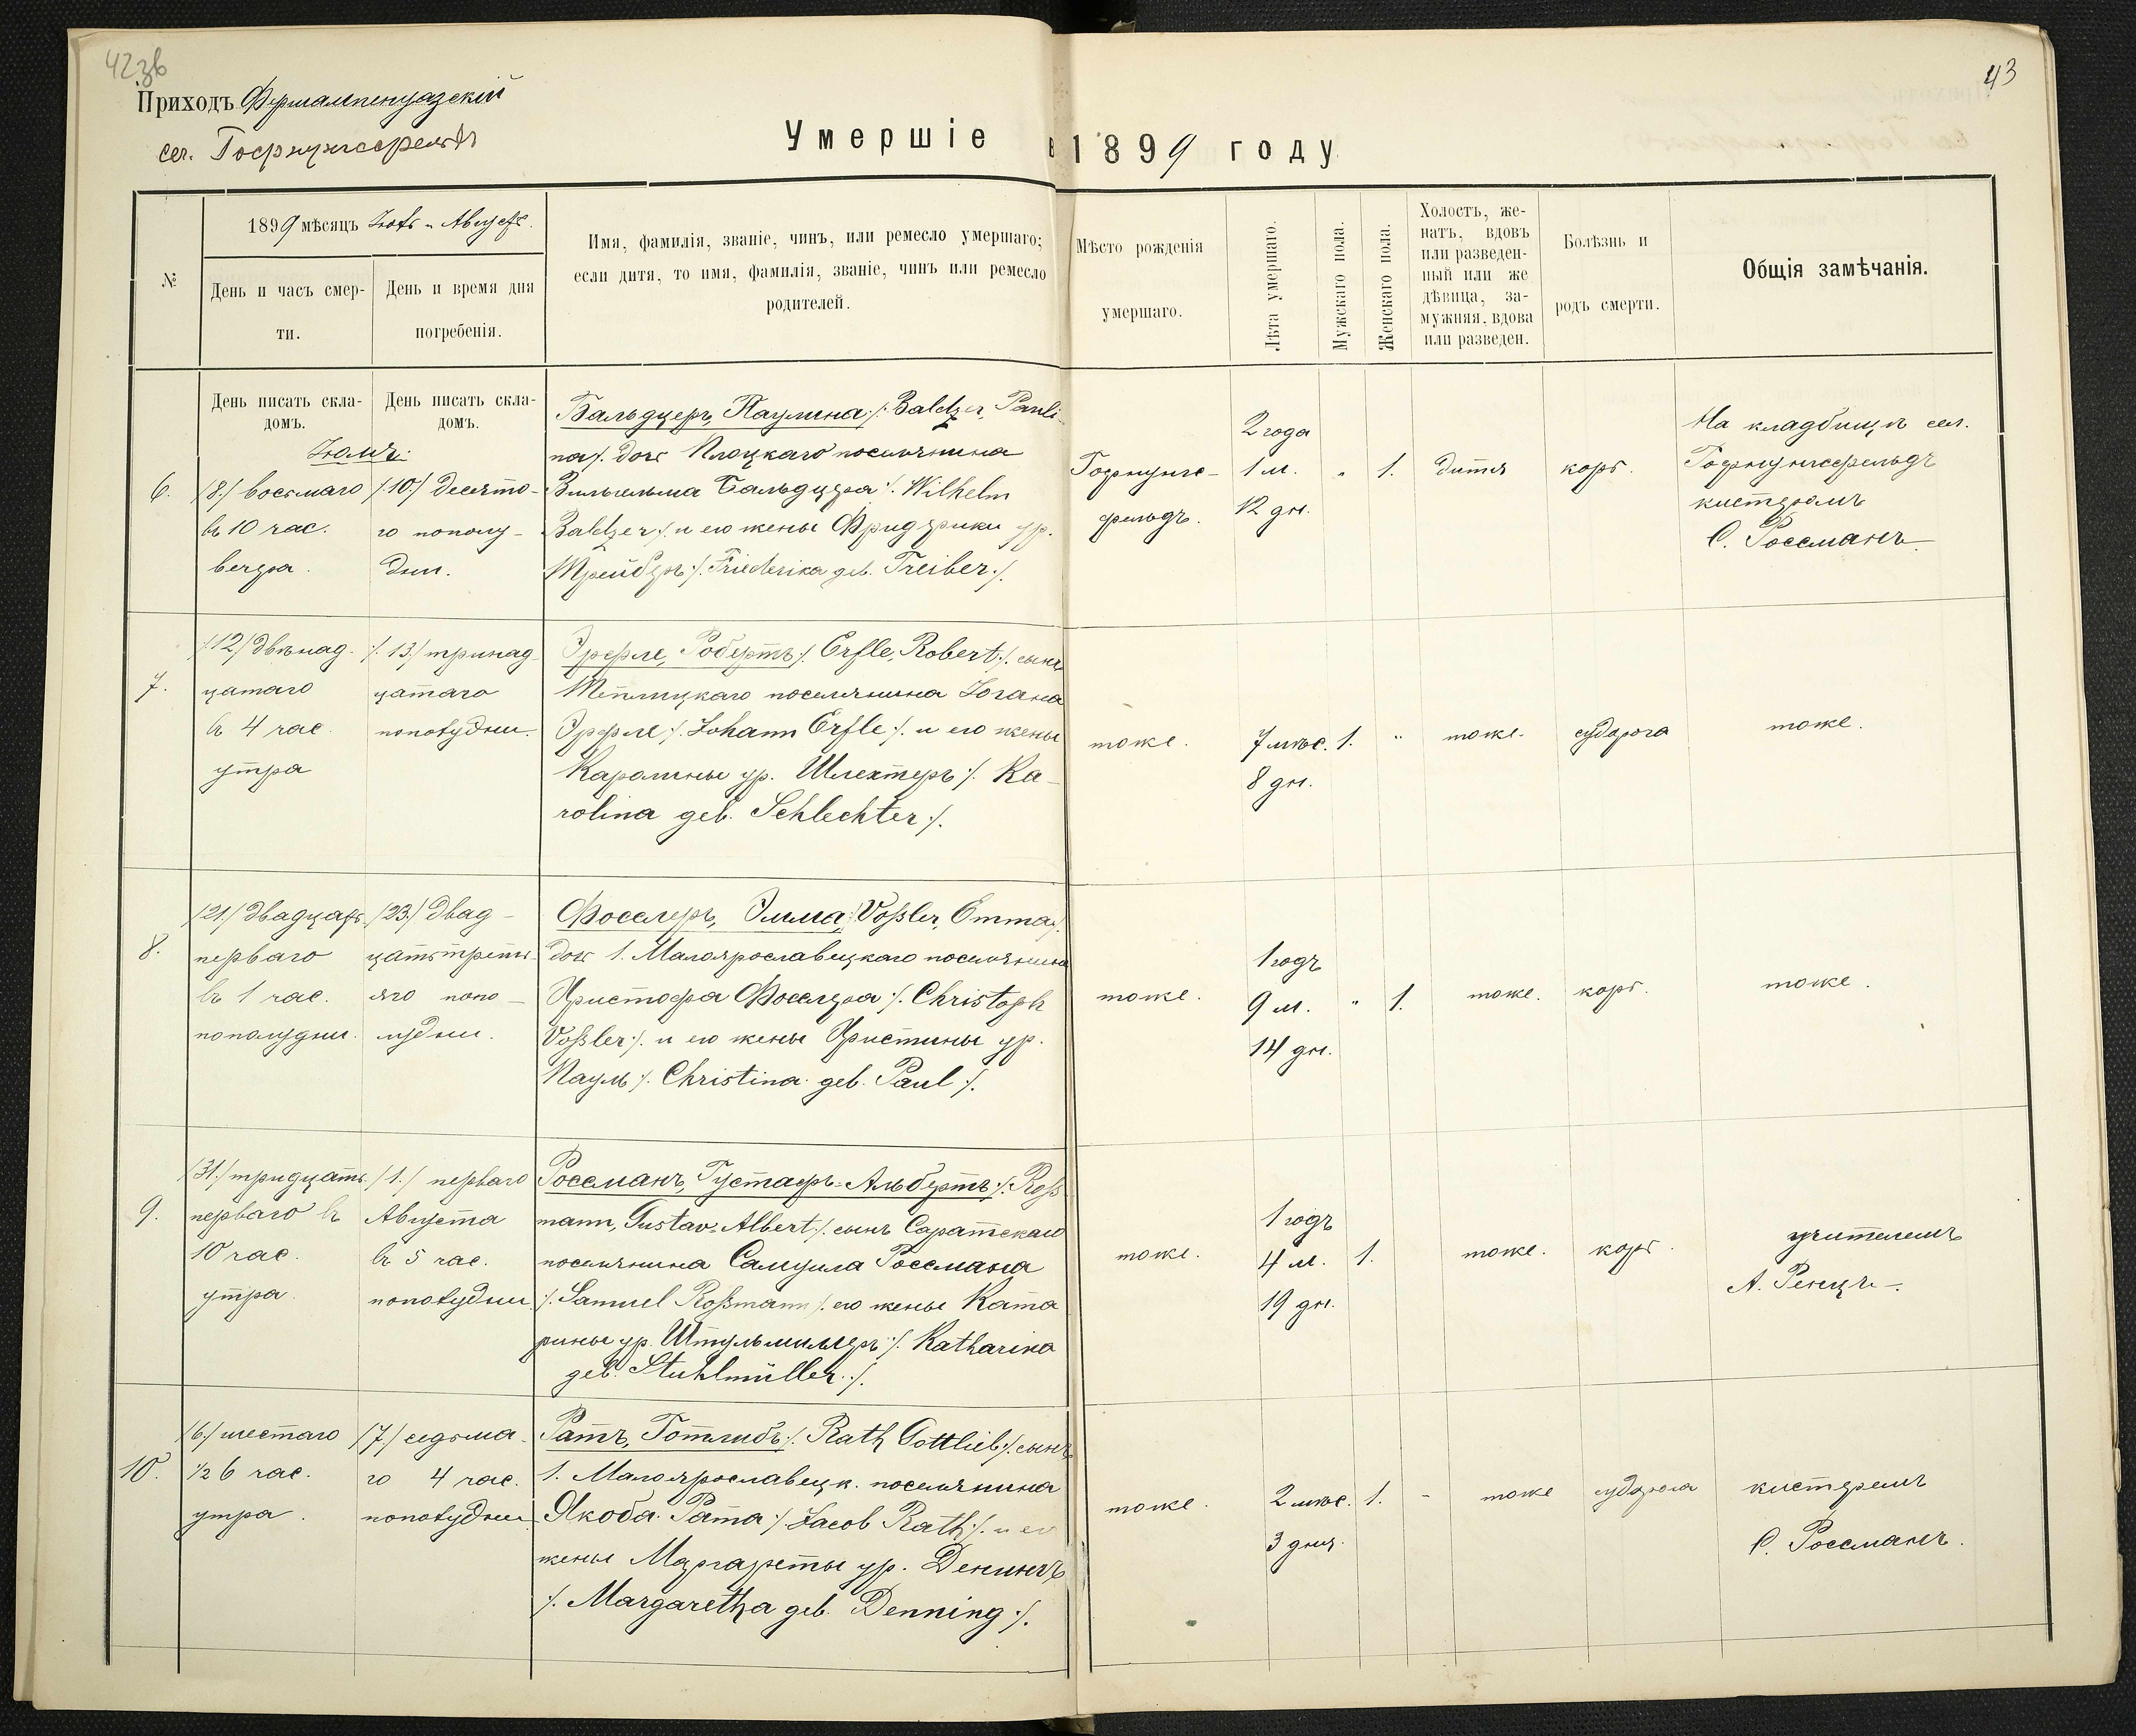 42зв
43
Приходъ Фершампенуазскій
сел. Гофнунгсфельдъ
Умершіе въ 1899 году
№
1899 мѣсяцъ Іюль и Августъ.
День и часъ смер-
ти.
День и время дня
погребенія.
Имя, фамилія, званіе, чинъ, или ремесло умершаго;
если дитя, то имя, фамилія, званіе, чинъ или ремесло
родителей.
Мѣсто рожденія
умершаго.
Лѣта умершаго.
Мужскаго пола.
Женскаго пола.
Холостъ, же-
натъ, вдовъ
или разведен-
ный или же
дѣвица, за-
мужняя, вдова
или разведен.
Болѣзнь и
родъ смерти.
Общія замѣчанія.
День писать скла-
домъ.
День писать скла-
домъ.
Іюль:
6.
/8./ восьмаго
въ 10 час.
вечера.
/10./ десято-
го пополу-
дни.
Бальдцеръ, Паулина ·/. Baldzer, Pauli-
na ·/. дочь Плоцкаго поселянина
Вильгельма Бальдцера ·/. Wilhelm
Baldzer ·/. и его жены Фридерики ур.
Трейберъ ·/. Friederika geb. Treiber ·/.
Гофнунгс-
фельдъ.
2 года
1 м.
12 дн.
"
1.
дитя
корь.
На кладбищѣ сел.
Гофнунгсфельдъ
кистеромъ
С. Россманъ
7.
/12./ двѣнад-
цатаго
въ 4 час.
утра
/.13./ тринад-
цатаго
пополудни.
Эрфле, Робертъ ·/. Erfle, Robert ·/. сынъ
Теплицкаго поселянина Іогана
Эрфле ·/. Johann Erfle ·/. и его жены
Каролины ур. Шлехтеръ ·/. Ka-
rolina geb. Schlechter ·/.
тоже.
7 мѣс.
8 дн.
1.
"
тоже.
судорога
тоже.
8.
/21./ двадцать
перваго
въ 1 час.
пополудни.
/23./ двад-
цатьтреть-
яго попо-
лудни.
Фосслеръ, Эмма ·/. Voßler, Emma ·/.
дочь 1. Малоярославецкаго поселянина
Христофа Фосслера ·/. Christoph
Voßler ·/. и его жены Христины ур.
Пауль ·/. Christina geb. Paul ·/.
тоже.
1 годъ
9 м.
14 дн.
"
1.
тоже.
корь.
тоже.
9.
/31./ тридцать
перваго въ
10 час.
утра.
/1./ перваго
Августа
въ 5 час.
пополудни.
Россманъ, Густафъ-Альбертъ ·/. Roß-
mann, Gustav-Albert ·/. сынъ Саратскаго
поселянина Самуила Россмана
·/. Samuel Roßmann ·/. его жены Ката-
рины ур. Штульмиллеръ ·/. Katharina
geb. Stuhlmüller ·/.
тоже.
1 годъ
4 м.
19 дн.
1.
тоже.
корь.
учителемъ
А. Ренцъ.
10.
/6./ шестаго
½ 6 час.
утра.
/7./ седьма-
го 4 час.
пополудни
Ратъ, Готлибъ ·/. Rath Gottlieb ·/. сынъ
1. Малоярославецк. поселянина
Якоба Рата ·/. Jacob Rath ·/. и его
жены Маргареты ур. Деннингъ
·/. Margaretha geb. Denning ·/.
тоже.
2 мѣс.
3 дня.
1.
-
тоже
судорога
кистеремъ
С. Россманъ.